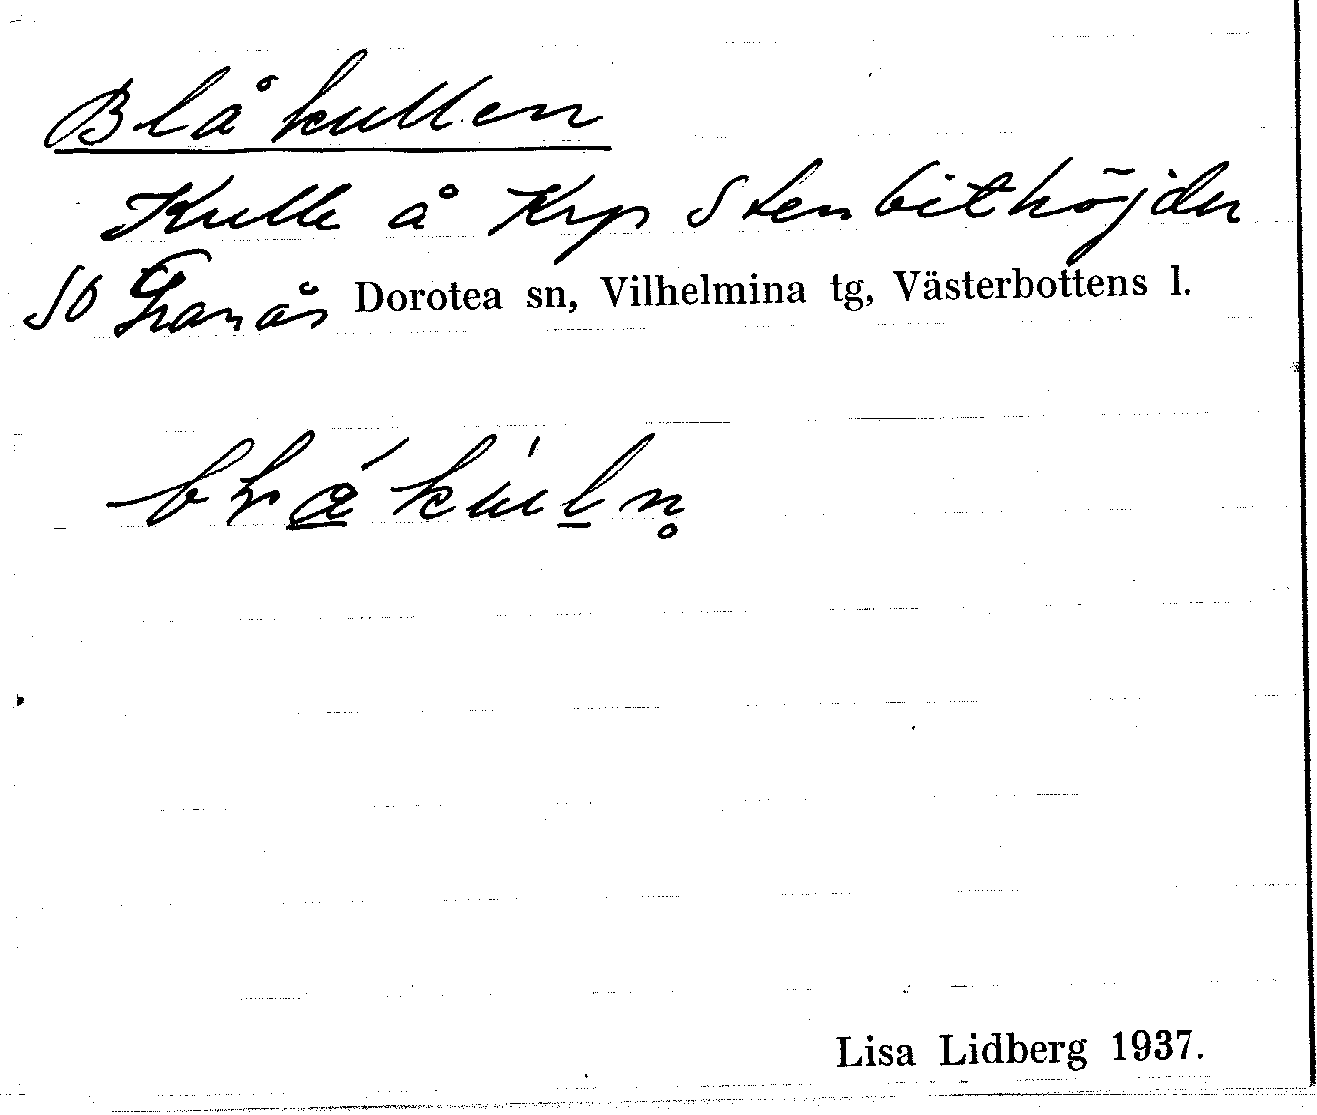 Blåkullen
Kulle å Krp Stenbithöjden
SO Granås Dorotea sn, Vilhelmina tg, Västerbottens l.
Lisa Lidberg 1937.